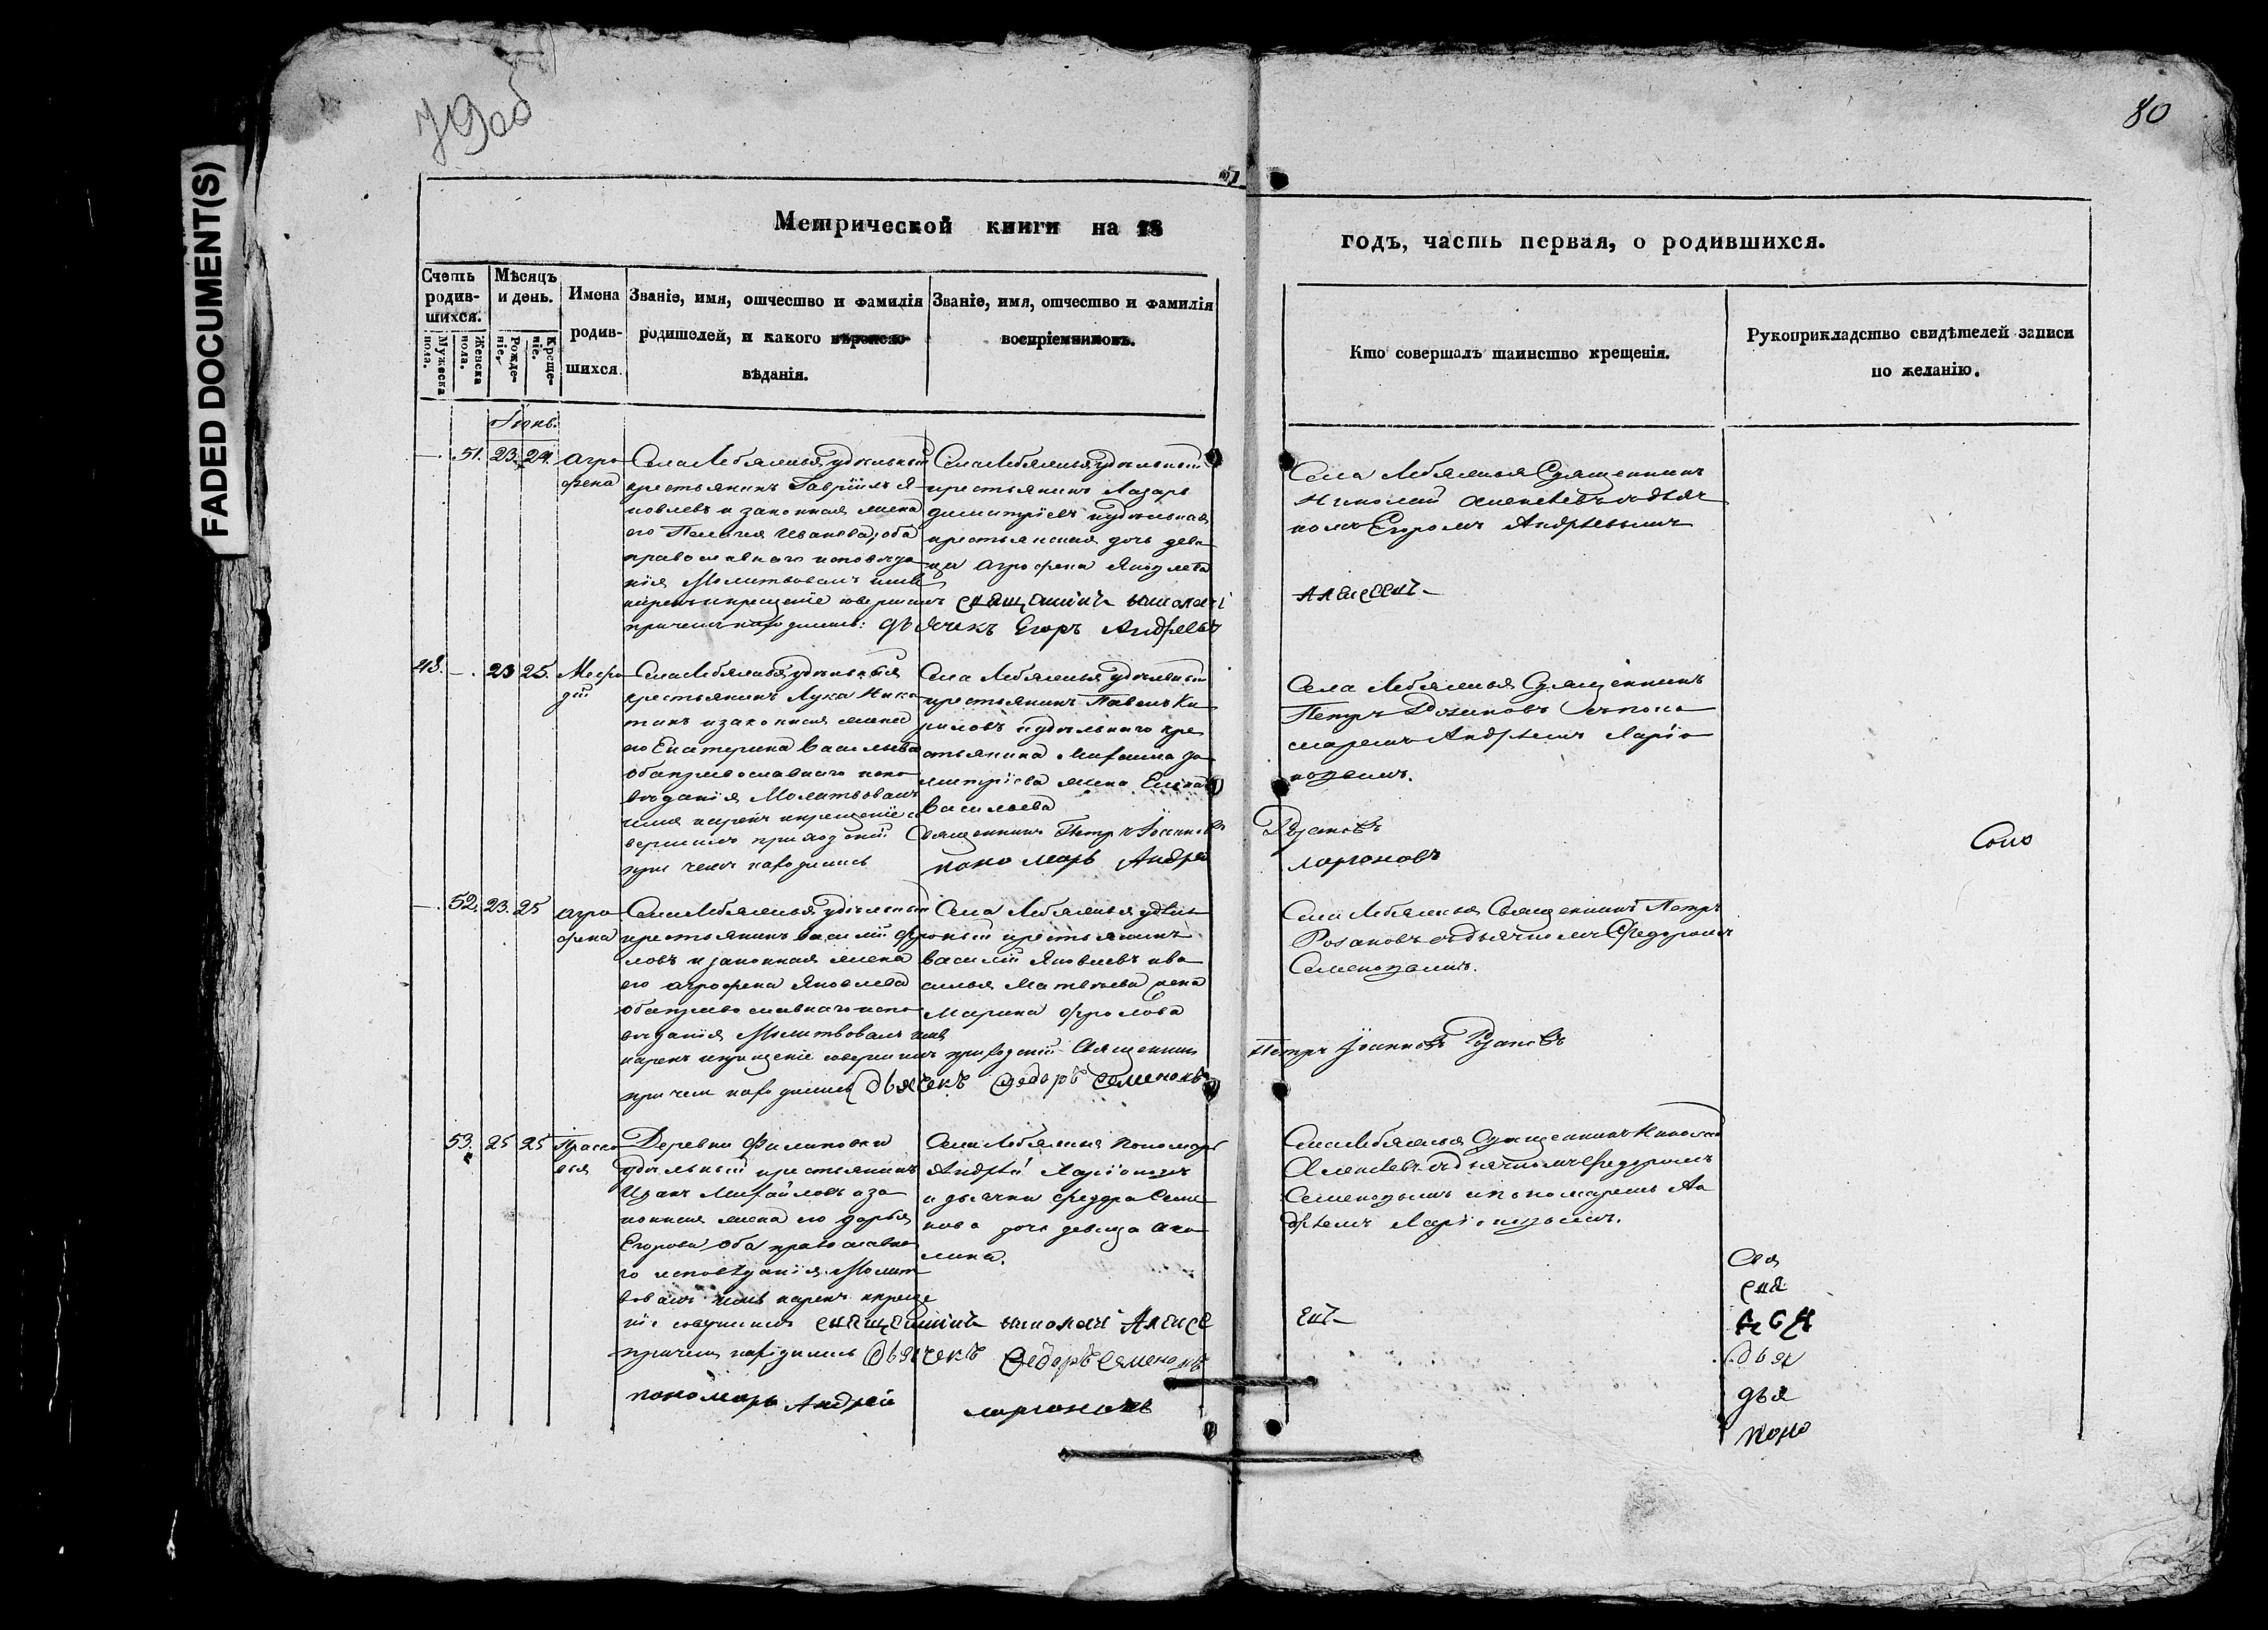 FADED DOCUMENT(S)
79об
80
Метрической книги на 18
годъ, часть первая, о родившихся.
Счетъ родив-шихся.
Мужеска пола.
Женска пола.
Мѣсяцъ и день.
Рожде-ніе.
Креще-ніе.
Имена
родив-
шихся.
Званіе, имя, отчество и фамилія
родителей, и какого вѣроиспо-
вѣданія.
Званіе, имя, отчество и фамилія
воспріемниковъ.
Кто совершалъ таинство крещенія.
Рукоприкладство свидѣтелей записи
по желанію.
Іюнь.
— 51. 23. 24. Агро
фена
Села Лебяжья удѣльный
крестьянинъ Гаврiилъ Я
ковлевъ и законная жена
его Пелагея Иванова, оба
православнаго исповѣда
нія Молитвовалъ имя
нарекъ и крещеніе совершилъ священникъ Николай
при чемъ находились: дьячекъ Егоръ Андреевъ
Села Лебяжья удѣльный
крестьянинъ Лазарь
Димитріевъ и удѣльная
крестьянская дочь деви
ца Агрофена Яковлева
Села Лебяжья Священникъ
Николай Алексѣевъ съ дьяч
комъ Егоромъ Андрѣевымъ
Алексеевъ
48. — 23 25. Мефо
дій
Села Лебяжья удѣльный
крестьянинъ Лука Ники
тинъ и законная жена
его Екатерина Васильева
оба православнаго испо
вѣданія Молитвовалъ
имя нарекъ и крещеніе со
вершилъ приходскій Священникъ Петръ Іоанновъ
при чемъ находились пономарь Андрей
Села Лебяжья удѣльный
крестьянинъ Павелъ Ки
риловъ и удѣльнаго кре
стьянина Михаила Ди
митріева жена
Васильева
Села Лебяжья Священникъ
Петръ Розановъ съ поно
маремъ Андрѣемъ Ларіо
новымъ.
Розановъ
Ларионовъ
— 52. 23. 25 Агро
фена
Села Лебяжья удѣльный
крестьянинъ Василій Фро
ловъ и законная жена
его Агрофена Яковлева
оба православнаго испо
вѣданія Молитвовалъ имя
нарекъ и крещеніе совершилъ приходскій Священникъ
при чемъ находились дьячекъ Федоръ Семеновъ
Села Лебяжья удѣль
ный крестьянинъ
Василій Яковлевъ и Ва
силья Матвѣева жена
Марина Фролова
Села Лебяжья Священникъ Петръ
Розановъ съ дьячкомъ Федоромъ
Семеновымъ.
Петръ Іоанновъ Розановъ
53. 25 25 Праско
вья
Деревни Филиповки
удѣльный крестьянинъ
Иванъ Михайловъ и за
конная жена его Дарья
Егорова оба православна
го исповѣданія. Молит
вовалъ имя нарекъ и креще
ніе совершилъ священникъ Николай Алексе
при чемъ находились дьячекъ Федоръ Семеновъ
пономарь Андрей Ларионовъ
Села Лебяжья пономарь
Андрѣй Ларіоновъ
и дьячка Федора Семе
нова дочь девица Аку
лина.
Села Лебяжья Священникъ Николай
Алексѣевъ съ дьячкомъ Федоромъ
Семеновымъ и пономаремъ Ан
дрѣемъ Ларіоновымъ.
евъ
Свя
дья
дья
поно